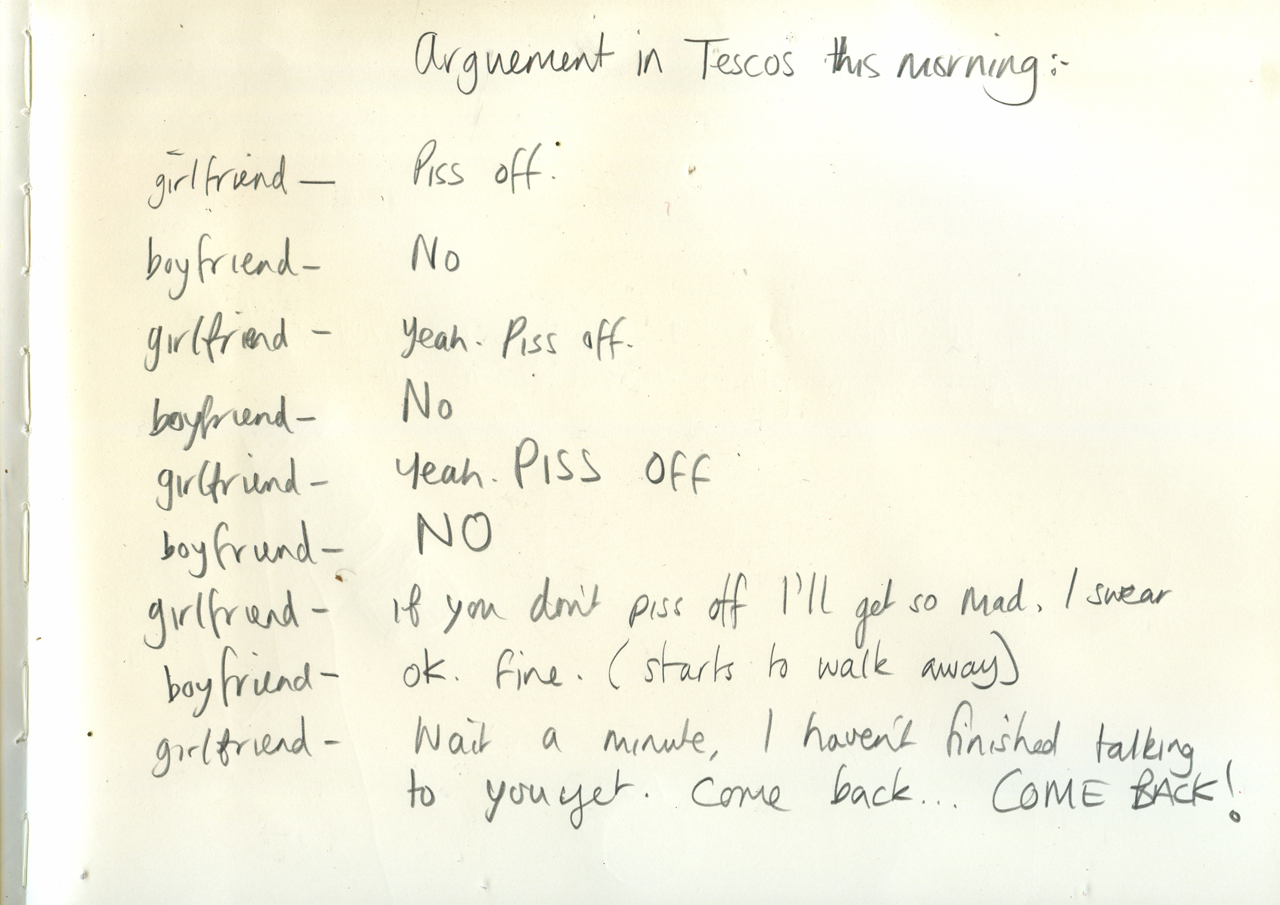 Arguement in Tescos this morning:-
girlfriend — Piss off.
boyfriend - No
girlfriend - Yeah. Piss off.
boyfriend - No
girlfriend - Yeah. PISS OFF
boyfriend - NO
girlfriend - If you don't piss off I'll get so mad, I swear
boyfriend - ok. fine. (starts to walk away)
girlfriend - Wait a minute, I haven't finished talking
to you yet. Come back... COME BACK!